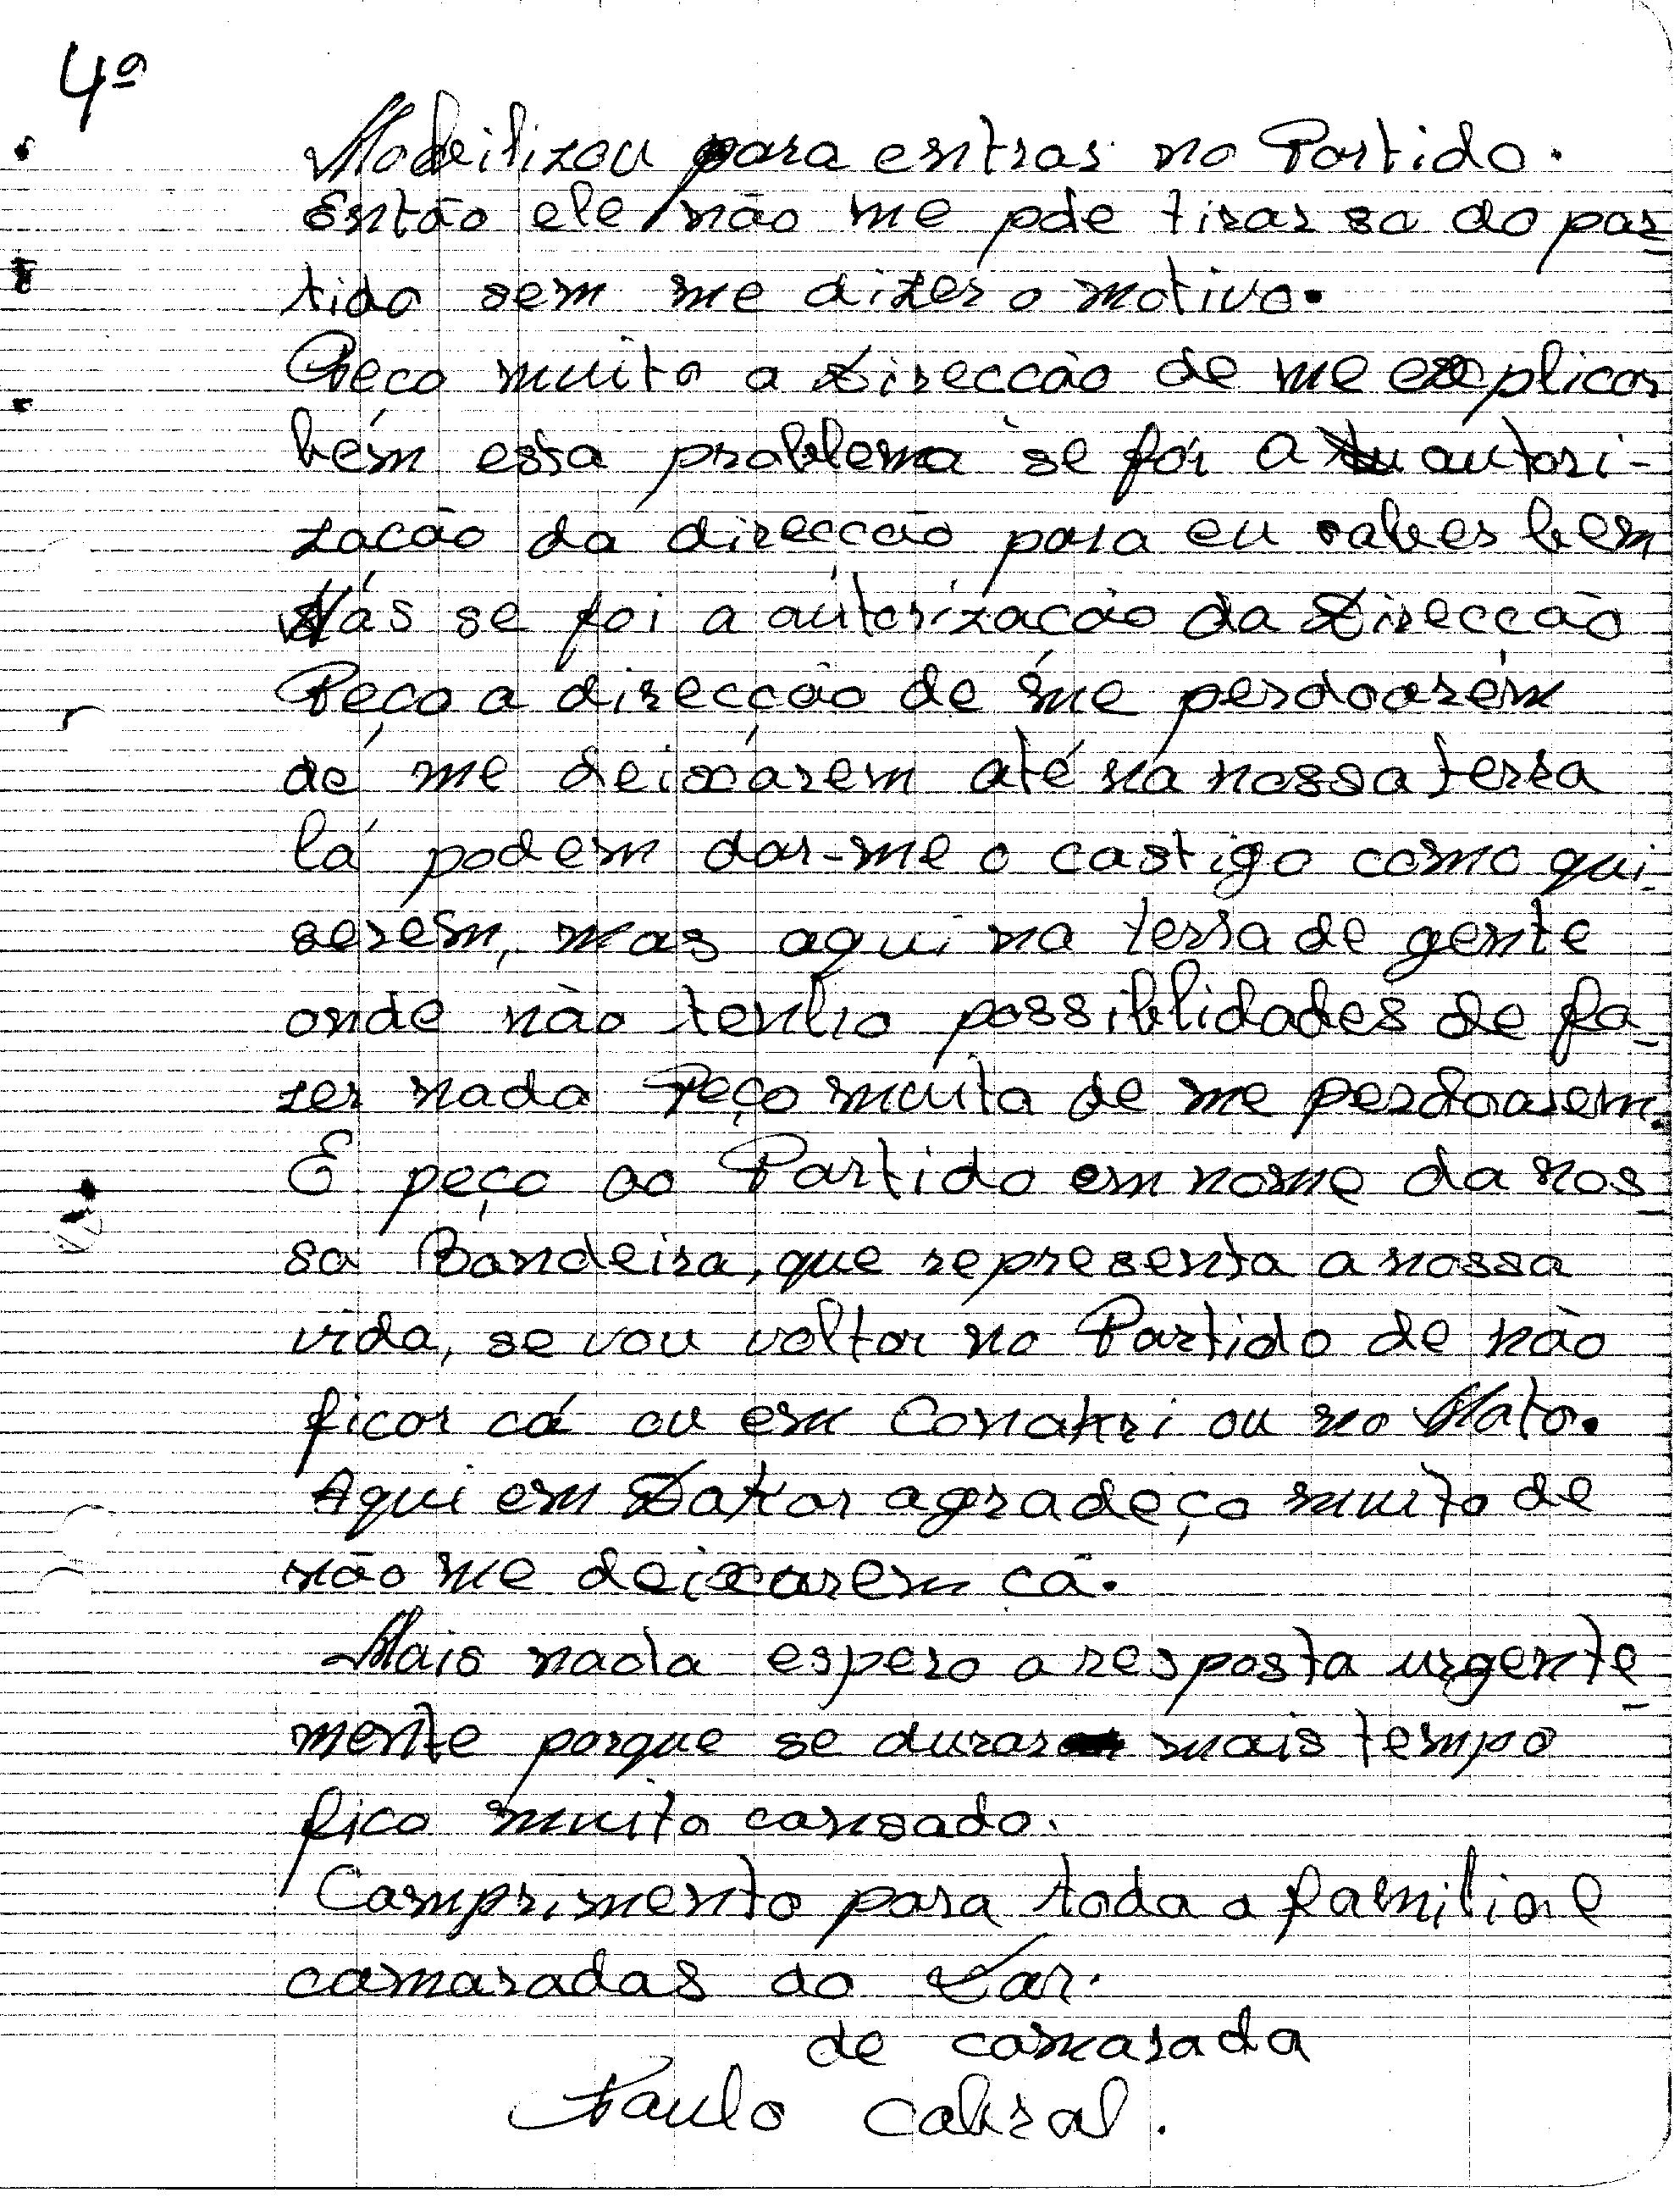 4º
Mobilizou para entrar no Partido.
Então ele não me pde tirar so do par-
tido sem me dizer o motivo.
Peço muito a Direccão de me explicar
bém essa problema se foi a autori-
zacão da direccão para eu saber bem
Más se foi a autorizacão da Direccão
Peço a direcção de me perdoarém
de me deixárem até na nossa terra
lá podem dar-me o castigo como qui-
serem, mas aqui na terra de gente
onde não tenho possiblidades de fa-
zer nada Peço muito de me perdoarem.
E peço ao Partido em nome da nos-
sa Bandeira, que representa a nossa
vida, se vou voltar no Partido de não
ficar cá ou em Conakri ou no Mato.
Aqui em Dakar agradeço muito de
não me deixarem cá.
Mais nada espero a resposta urgente-
mente porque se durar mais tempo
fico muito cansado.
Comprimento para toda a familia e
camaradas do Lar.
de camarada
Paulo Cabral.